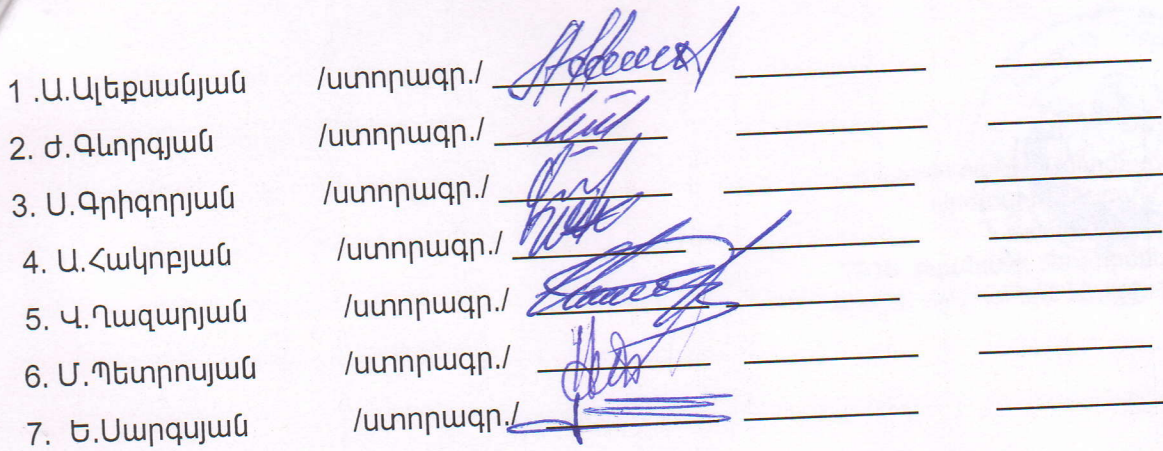 1 .Ա.Ալեքսանյան /ստորագր./
2. Ժ.Գևորգյան /ստորագր./
3. Ս.Գրիգորյան /ստորագր./
4. Ա.Հակոբյան /ստորագր./
5. Վ.Ղազարյան /ստորագր./
6. Մ.Պետրոսյան /ստորագր./
7. Ե.Սարգսյան /ստորագր./